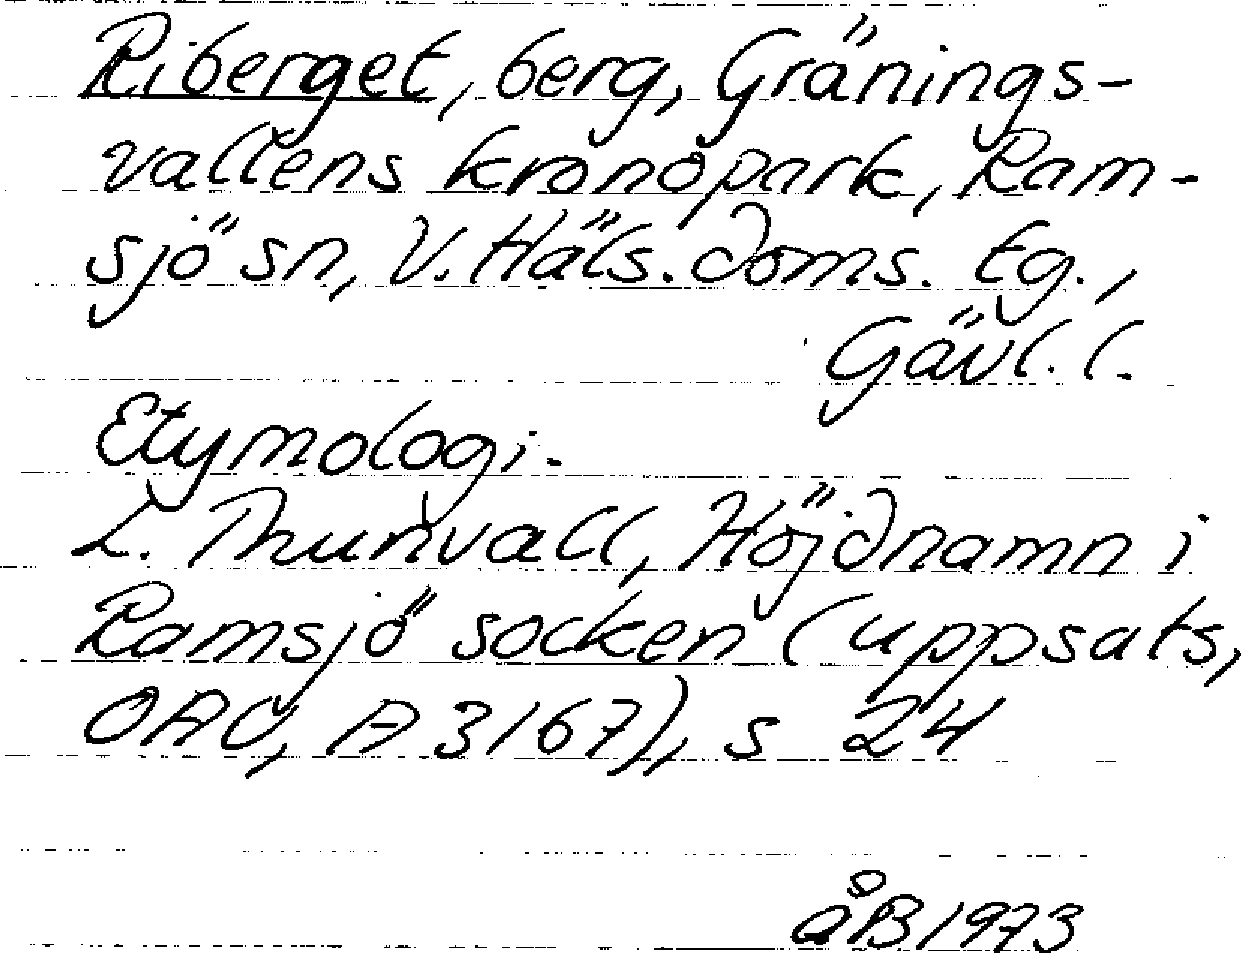 Riberget, berg, Gränings-
vallens kronopark, Ram-
sjö sn, V. Häls. doms. tg.,
Gävl. l.
Etymologi.
L. Thunvall, Höjdnamn i
Ramsjö socken (uppsats,
OAU, A 3167), s 24
åB 1973